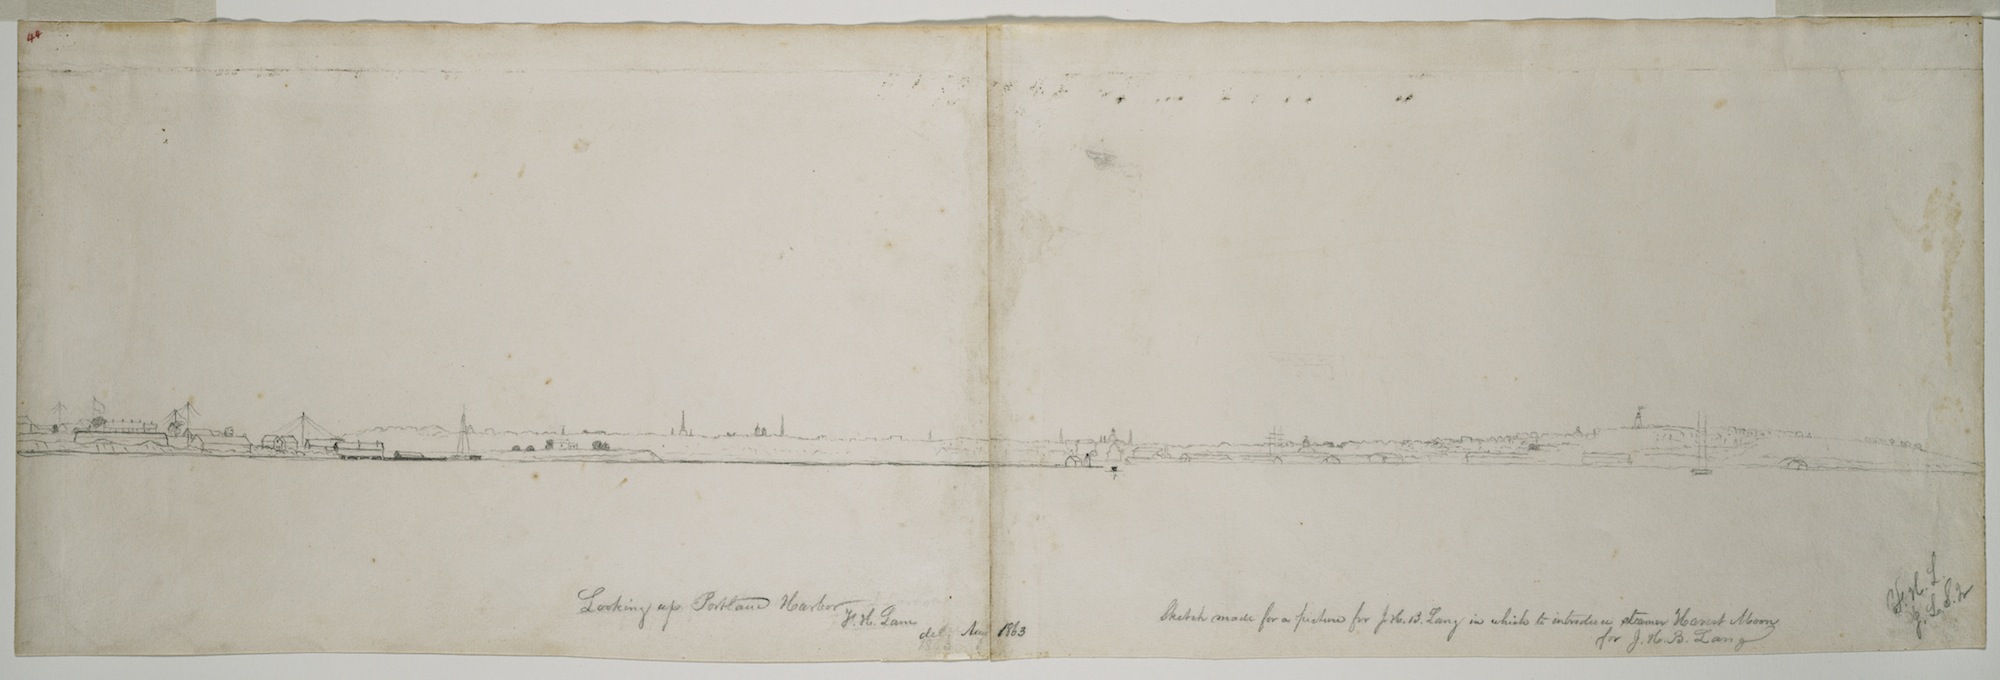 44
Looking up Portland Harbor
F. H. Lane
del. Aug 1863
Sketch made for a picture for J. H. B. Lang in which to introduce steamer Harvest Moon
for J. H. B. Lang
F. H. L.